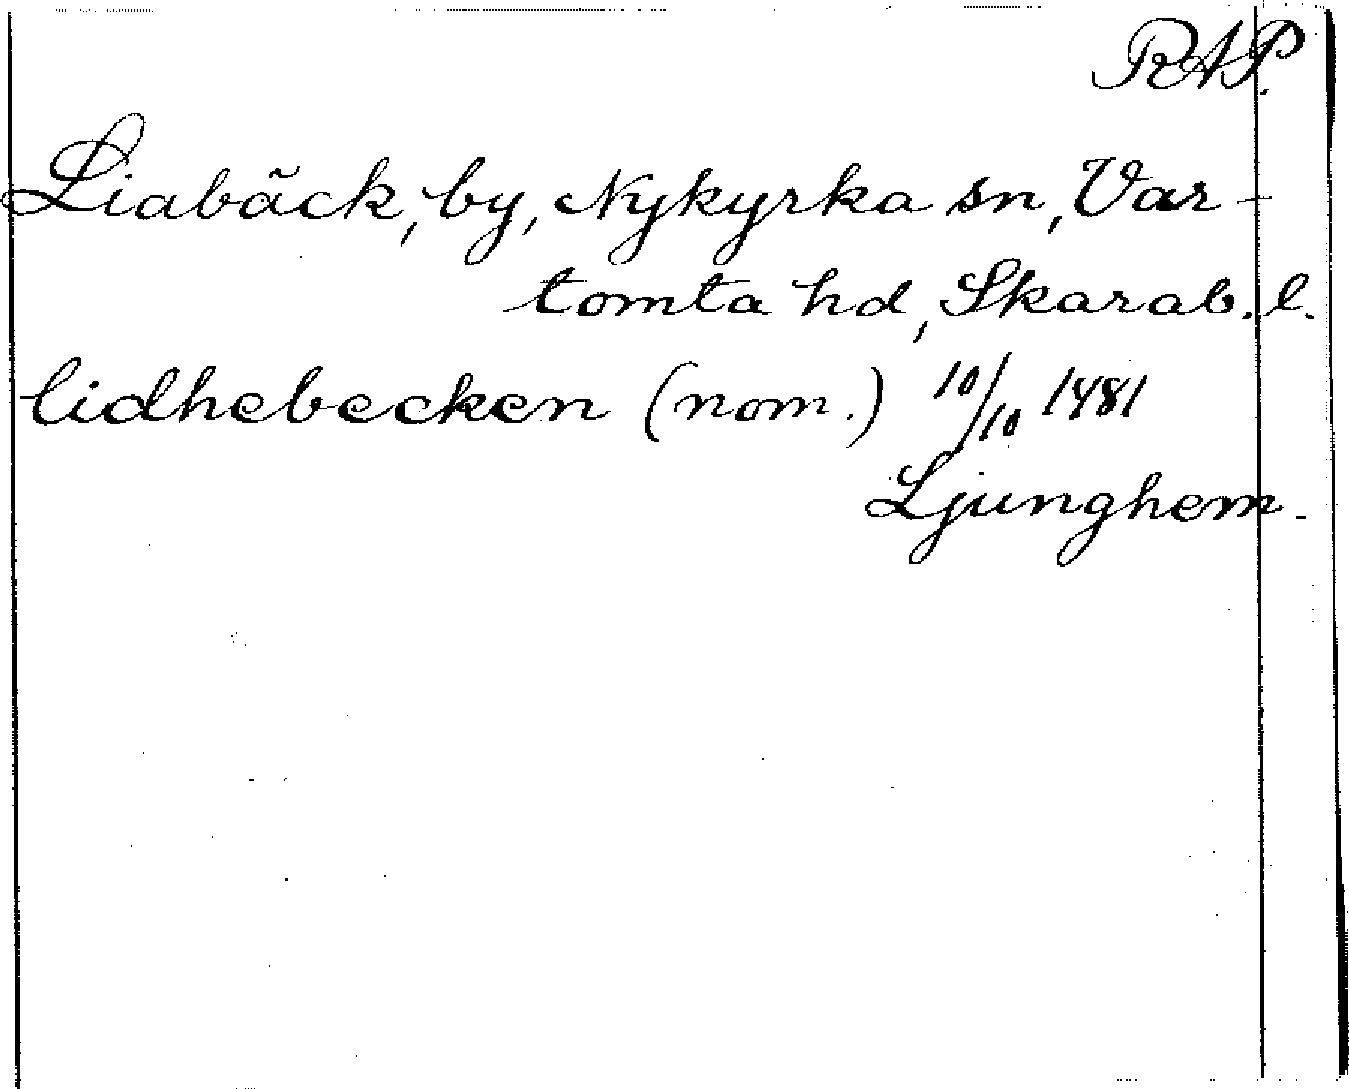 RAP.
Liabäck, by, Nykyrka sn, Var-
tomta hd, Skarab. l.
lidhebecken (nom.) 10/10 1481
Ljunghem.